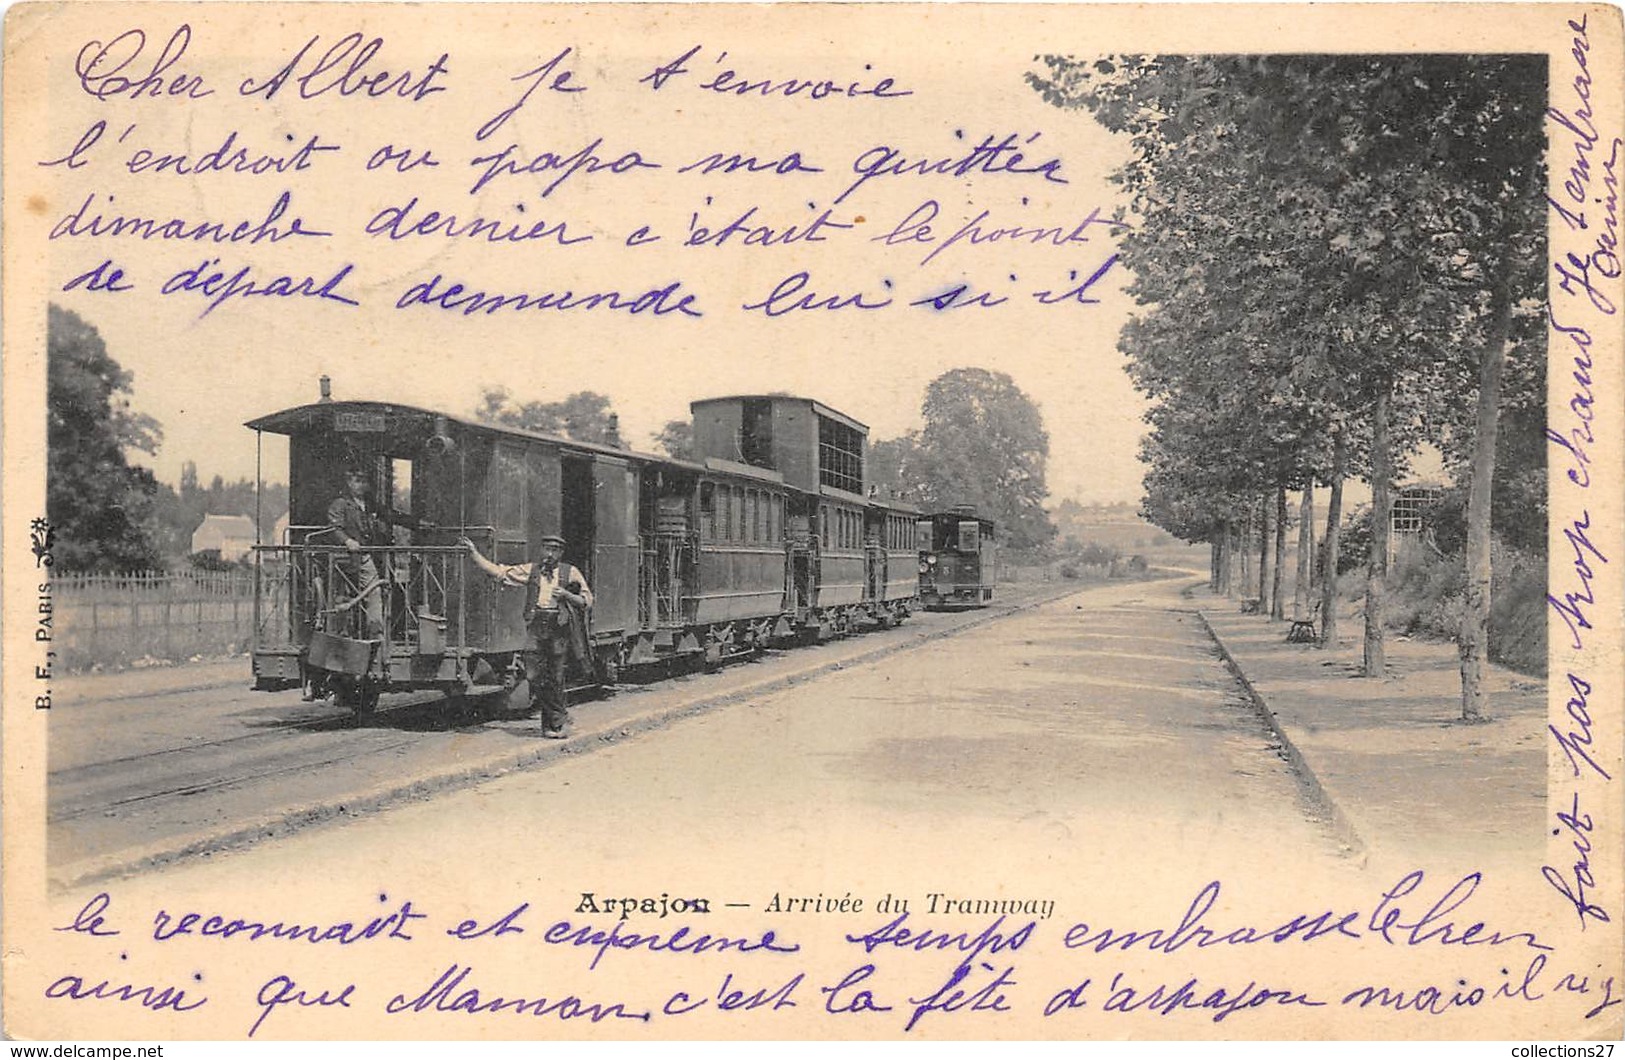 Cher Albert Je t'envoie
l'endroit ou papa ma quittér
dimanche dernier c'était le point
de départ demande lui si il
B. F., PARIS
Arpajon — Arrivée du Tramway
le reconnait et en même temps embrasse le
ainsi que Maman. c'est la fête d'arpajon mais il
fait pas trop chaud Je t'embrasse
collections27